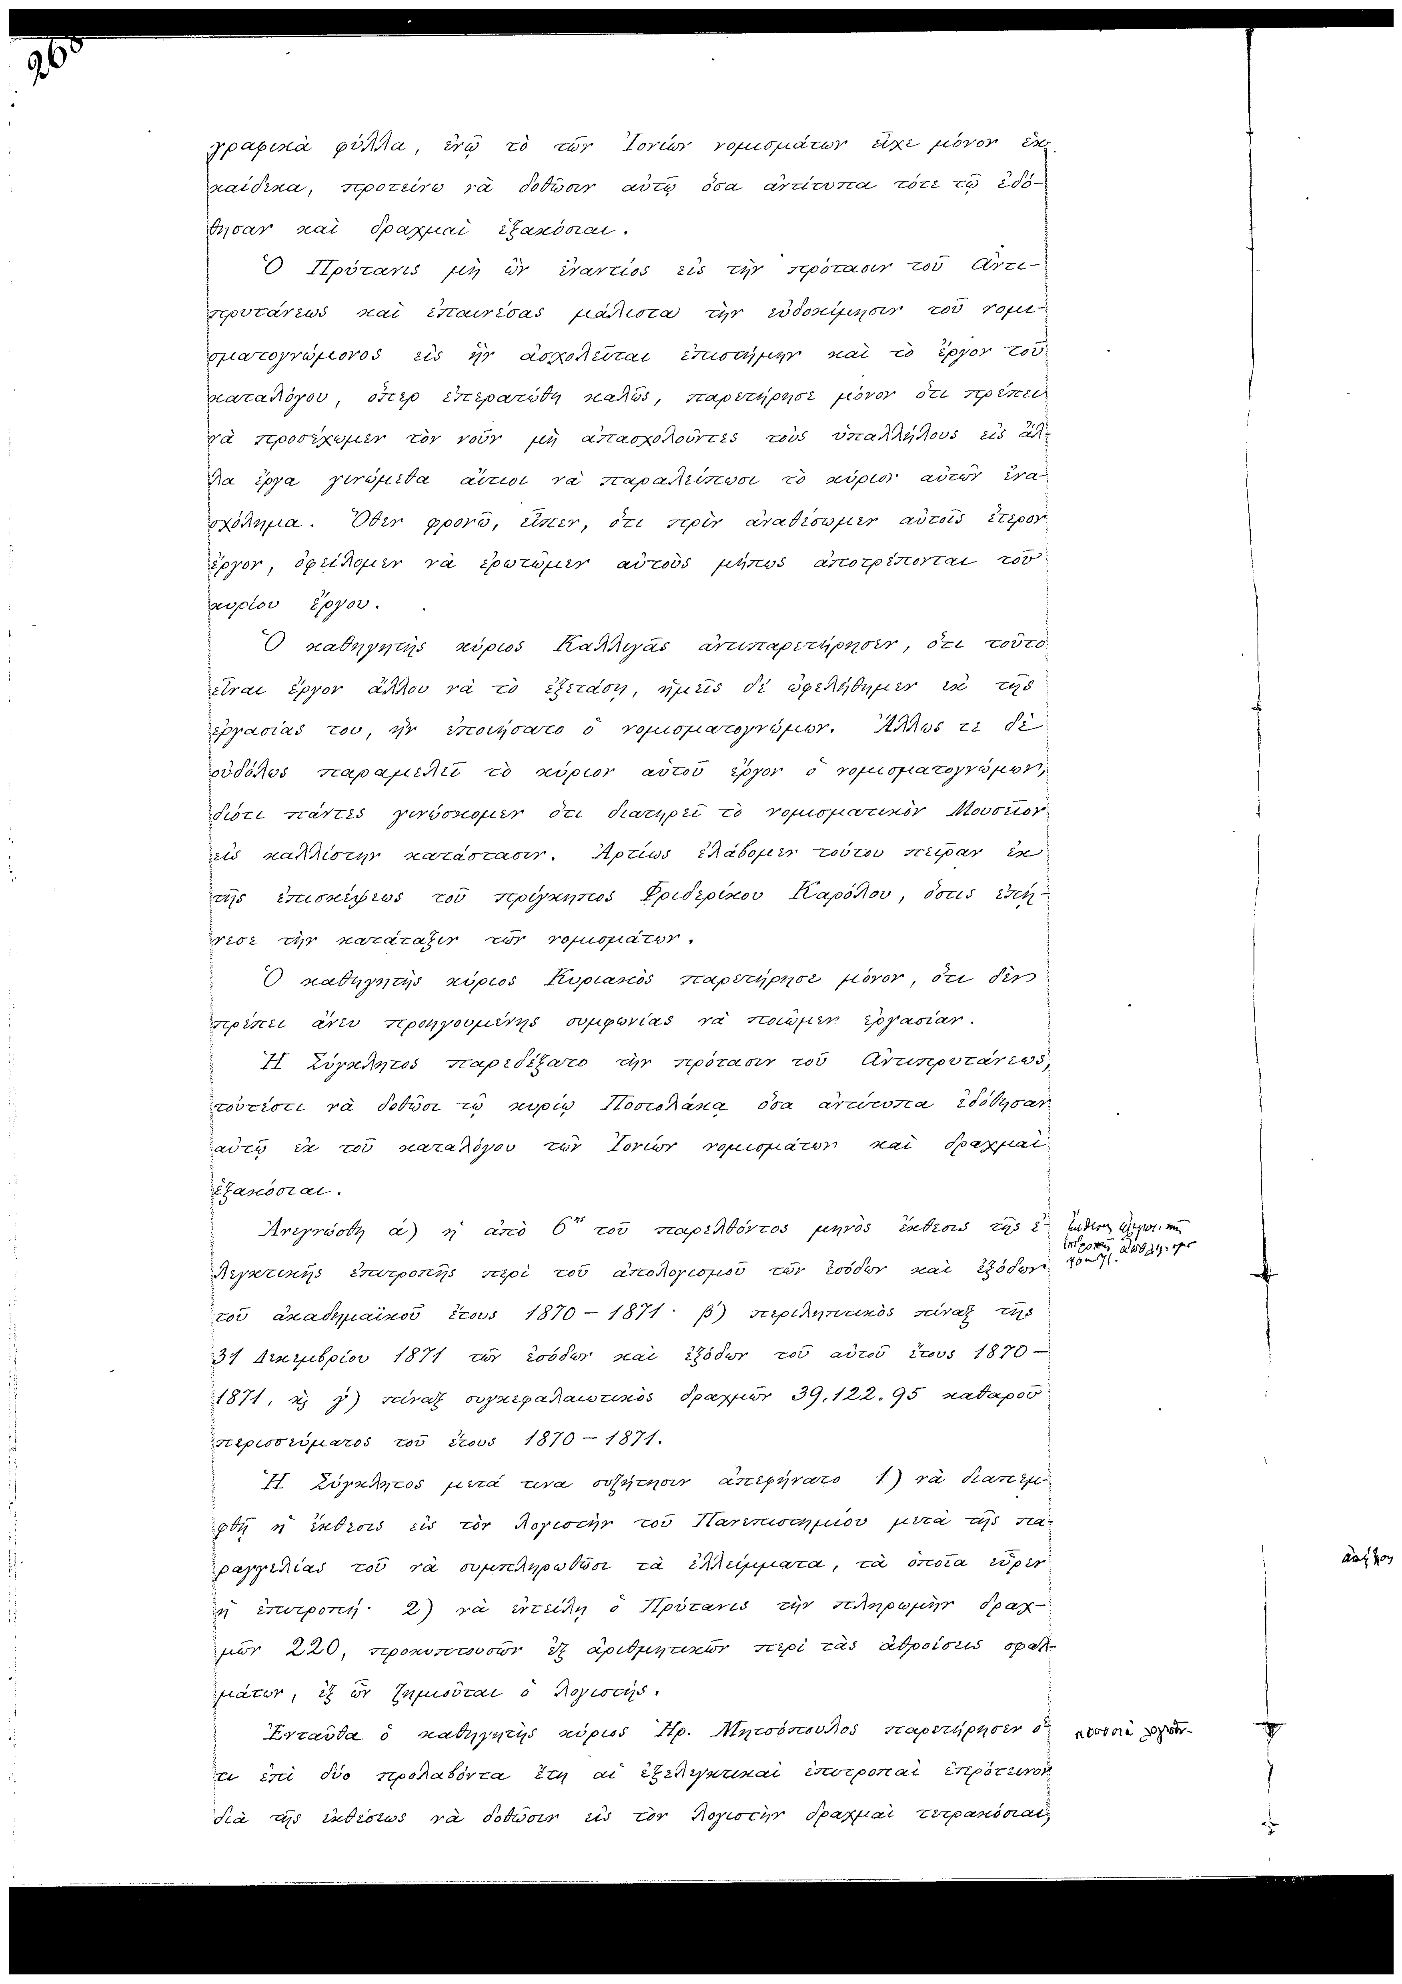 268
γραφικὰ φύλλα, ἐνῷ τὸ τῶν Ἰονίων νομισμάτων εἶχε μόνον ἑκ-
καίδεκα, προτείνω νὰ δοθῶσιν αὐτῷ ὅσα ἀντίτυπα τότε τῷ ἐδό-
θησαν καὶ δραχμαὶ ἑξακόσιαι.
Ὁ Πρύτανις μὴ ὢν ἐναντίος εἰς τὴν πρότασιν τοῦ Ἀντι-
πρυτάνεως καὶ ἐπαινέσας μάλιστα τὴν εὐδοκίμησιν τοῦ νομι-
σματογνώμονος εἰς ἣν ἀσχολεῖται ἐπιστήμην καὶ τὸ ἔργον τοῦ
καταλόγου, ὅπερ ἐπερατώθη καλῶς, παρετήρησε μόνον ὅτι πρέπει
νὰ προσέχωμεν τὸν νοῦν μὴ ἀπασχολοῦντες τοὺς ὑπαλλήλους εἰς ἄλ-
λα ἔργα γινώμεθα αἴτιοι νὰ παραλείπωσι τὸ κύριον αὐτῶν ἐνα-
σχόλημα. Ὅθεν φρονῶ, εἶπεν, ὅτι πρὶν ἀναθέσωμεν αὐτοῖς ἕτερον
ἔργον, ὀφείλομεν νὰ ἐρωτῶμεν αὐτοὺς μήπως ἀποτρέπονται τοῦ
κυρίου ἔργου.
Ὁ καθηγητὴς κύριος Καλλιγᾶς ἀντιπαρετήρησεν, ὅτι τοῦτο
εἶναι ἔργον ἄλλου νὰ τὸ ἐξετάσῃ, ἡμεῖς δὲ ὠφελήθημεν ἐκ τῆς
ἐργασίας του, ἣν ἐποιήσατο ὁ νομισματογνώμων. Ἄλλως τε δὲ
οὐδόλως παραμελεῖ τὸ κύριον αὐτοῦ ἔργον ὁ νομισματογνώμων,
διότι πάντες γινώσκομεν ὅτι διατηρεῖ τὸ νομισματικὸν Μουσεῖον
εἰς καλλίστην κατάστασιν. Ἀρτίως ἐλάβομεν τούτου πεῖραν ἐκ
τῆς ἐπισκέψεως τοῦ πρίγκηπος Φριδερίκου Καρόλου, ὅστις ἐπῄ-
νεσε τὴν κατάταξιν τῶν νομισμάτων.
Ὁ καθηγητὴς κύριος Κυριακὸς παρετήρησε μόνον, ὅτι δὲν
πρέπει ἄνευ προηγουμένης συμφωνίας νὰ ποιῶμεν ἐργασίαν.
Ἡ Σύγκλητος παρεδέξατο τὴν πρότασιν τοῦ Ἀντιπρυτάνεως,
τοὐτέστι νὰ δοθῶσι τῷ κυρίῳ Ποστολάκᾳ ὅσα ἀντίτυπα ἐδόθησαν
αὐτῷ ἐκ τοῦ καταλόγου τῶν Ἰονίων νομισμάτων καὶ δραχμαὶ
ἑξακόσιαι.
Ἀνεγνώσθη ά) ἡ ἀπὸ 6ης τοῦ παρελθόντος μηνὸς ἔκθεσις τῆς ἐ-
λεγκτικῆς ἐπιτροπῆς περὶ τοῦ ἀπολογισμοῦ τῶν ἐσόδων καὶ ἐξόδων
τοῦ ἀκαδημαϊκοῦ ἔτους 1870–1871· β́) περιληπτικὸς πίναξ τῆς
31 Δεκεμβρίου 1871 τῶν ἐσόδων καὶ ἐξόδων τοῦ αὐτοῦ ἔτους 1870–
1871, κ̀ γ́) πίναξ συγκεφαλαιωτικὸς δραχμῶν 39.122.95 καθαροῦ
περισσεύματος τοῦ ἔτους 1870–1871.
Ἡ Σύγκλητος μετά τινα συζήτησιν ἀπεφήνατο 1) νὰ διαπεμ-
φθῇ ἡ ἔκθεσις εἰς τὸν λογιστὴν τοῦ Πανεπιστημίου μετὰ τῆς πα-
ραγγελίας τοῦ νὰ συμπληρωθῶσι τὰ ἐλλείμματα, τὰ ὁποῖα εὗρεν
ἡ ἐπιτροπή· 2) νὰ ἐντείλῃ ὁ Πρύτανις τὴν πληρωμὴν δραχ-
μῶν 220, προκυπτουσῶν ἐξ ἀριθμητικῶν περὶ τὰς ἀθροίσεις σφαλ-
μάτων, ἐξ ὧν ζημιοῦται ὁ λογιστής.
Ἐνταῦθα ὁ καθηγητὴς κύριος Ἡρ. Μητσόπουλος παρετήρησεν ὅ-
τι ἐπὶ δύο προλαβόντα ἔτη αἱ ἐξελεγκτικαὶ ἐπιτροπαὶ ἐπρότεινον
διὰ τῆς ἐκθέσεως νὰ δοθῶσιν εἰς τὸν λογιστὴν δραχμαὶ τετρακόσιαι,